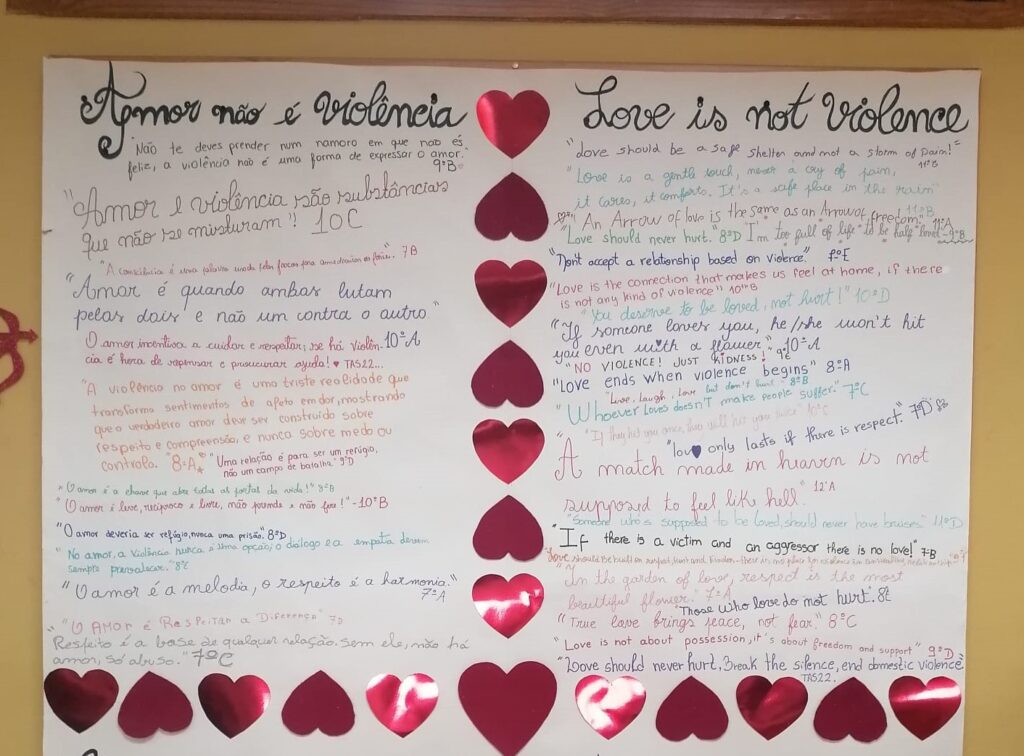 Amor não é violência
"Não te deves prender num namoro em que não és
feliz, a violência não é uma forma de expressar o amor."
9ºB
"Amor e violência são substâncias
que não se misturam"! 10C
7A
"Amor é quando ambos lutam
pelos dois e não um contra o outro"
10ºA
O amor incentiva a cuidar e respeitar, se há violên-
cia é hora de repensar e procurar ajuda! ♥ TAS22...
"A violência no amor é uma triste realidade que
transforma sentimentos de afeto em dor, mostrando
que o verdadeiro amor deve ser construído sobre
respeito e compreensão, e nunca sobre medo ou
controlo." 8ºA
"Uma relação é para ser um refúgio,
não um campo de batalha." 9ºD
"O amor é a chave que abre todas as portas da vida!" 8ºB
"O amor é leve, recíproco e livre, não prende e não fere!" -10ºB
"O amor deveria ser refúgio, nunca uma prisão." 8ºD
"No amor, a violência nunca é uma opção, o diálogo e a empatia devem
sempre prevalecer." 8ºE
"O amor é a melodia, o respeito é a harmonia."
7ºA
"O Amor é Respeitar a Diferença" 7D
Respeito é a base de qualquer relação. Sem ele, não há
amor, só abuso." 7ºC
Love is not violence
"Love should be a safe shelter and not a storm of Pain!"
11ºB
"Love is a gentle touch, never a cry of pain,
it cares, it comforts. It's a safe place in the rain"
11ºB
"An Arrow of love is the same as an Arrow of freedom." 11ºA
"Love should never hurt." 8ºD I'm too full of life to be half loved -9ºB
"Don't accept a relationship based on violence." 7ºE
"Love is the connection that makes us feel at home, if there
is not any kind of violence" 10ºB
"You deserve to be loved, not hurt!" 10ºD
"If someone loves you, he/she won't hit
you even with a flower." 10ºA
"NO VIOLENCE! JUST KIDNESS!" 9ºE
"Love ends when violence begins" 8ºA
"Live, Laugh, Love but don't hurt" 8ºB
"Whoever loves doesn't make people suffer." 7ºC
"If they hit you once, they will hit you twice" 10ºC
"love only lasts if there is respect." 7ºD
"A match made in heaven is not
supposed to feel like hell." 12ºA
"Someone who's supposed to be loved, should never have bruises" 11ºD
"If there is a victim and an aggressor there is no love!" 7B
"In the garden of love, respect is the most
beautiful flower." 7ºA
"Those who love do not hurt." 8E
"True love brings peace, not fear." 8ºC
"Love is not about possession, it's about freedom and support" 9ºD
"Love should never hurt. Break the silence, end domestic violence"
TAS22.